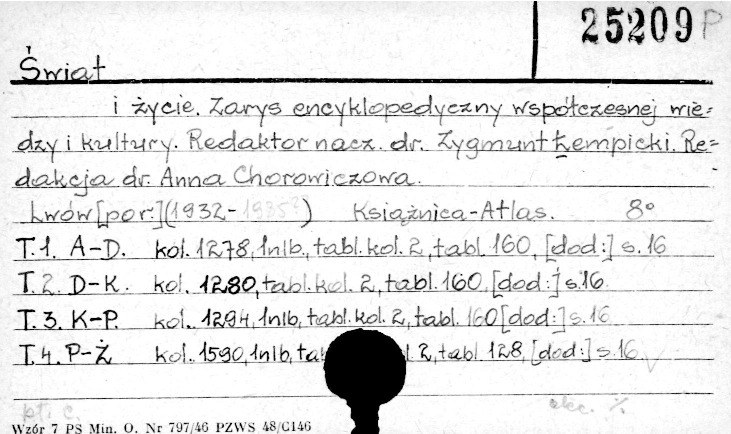 25209 P
Świat
i życie. Zarys encyklopedyczny współczesnej wie=
dzy i kultury. Redaktor nacz. dr. Zygmunt Łempicki. Re=
dakcja dr. Anna Chorowiczowa.
Lwów [por:] (1932-1935?) Książnica-Atlas. 8°
T.1. A-D. kol. 1278, 1nlb, tabl. kol. 2, tabl. 160, [dod:] s. 16
T.2. D-K. kol. 1280, tabl. kol. 2, tabl. 160, [dod:] s. 16.
T.3. K-P. kol. 1294, 1nlb, tabl. kol. 2, tabl. 160 [dod:] s. 16
T.4. P-Ż kol. 1590, 1nlb, tab l. 2, tabl. 128, [dod:] s. 16
pł. c.
Wzór 7 PS Min. O. Nr 797/46 PZWS 48/C146